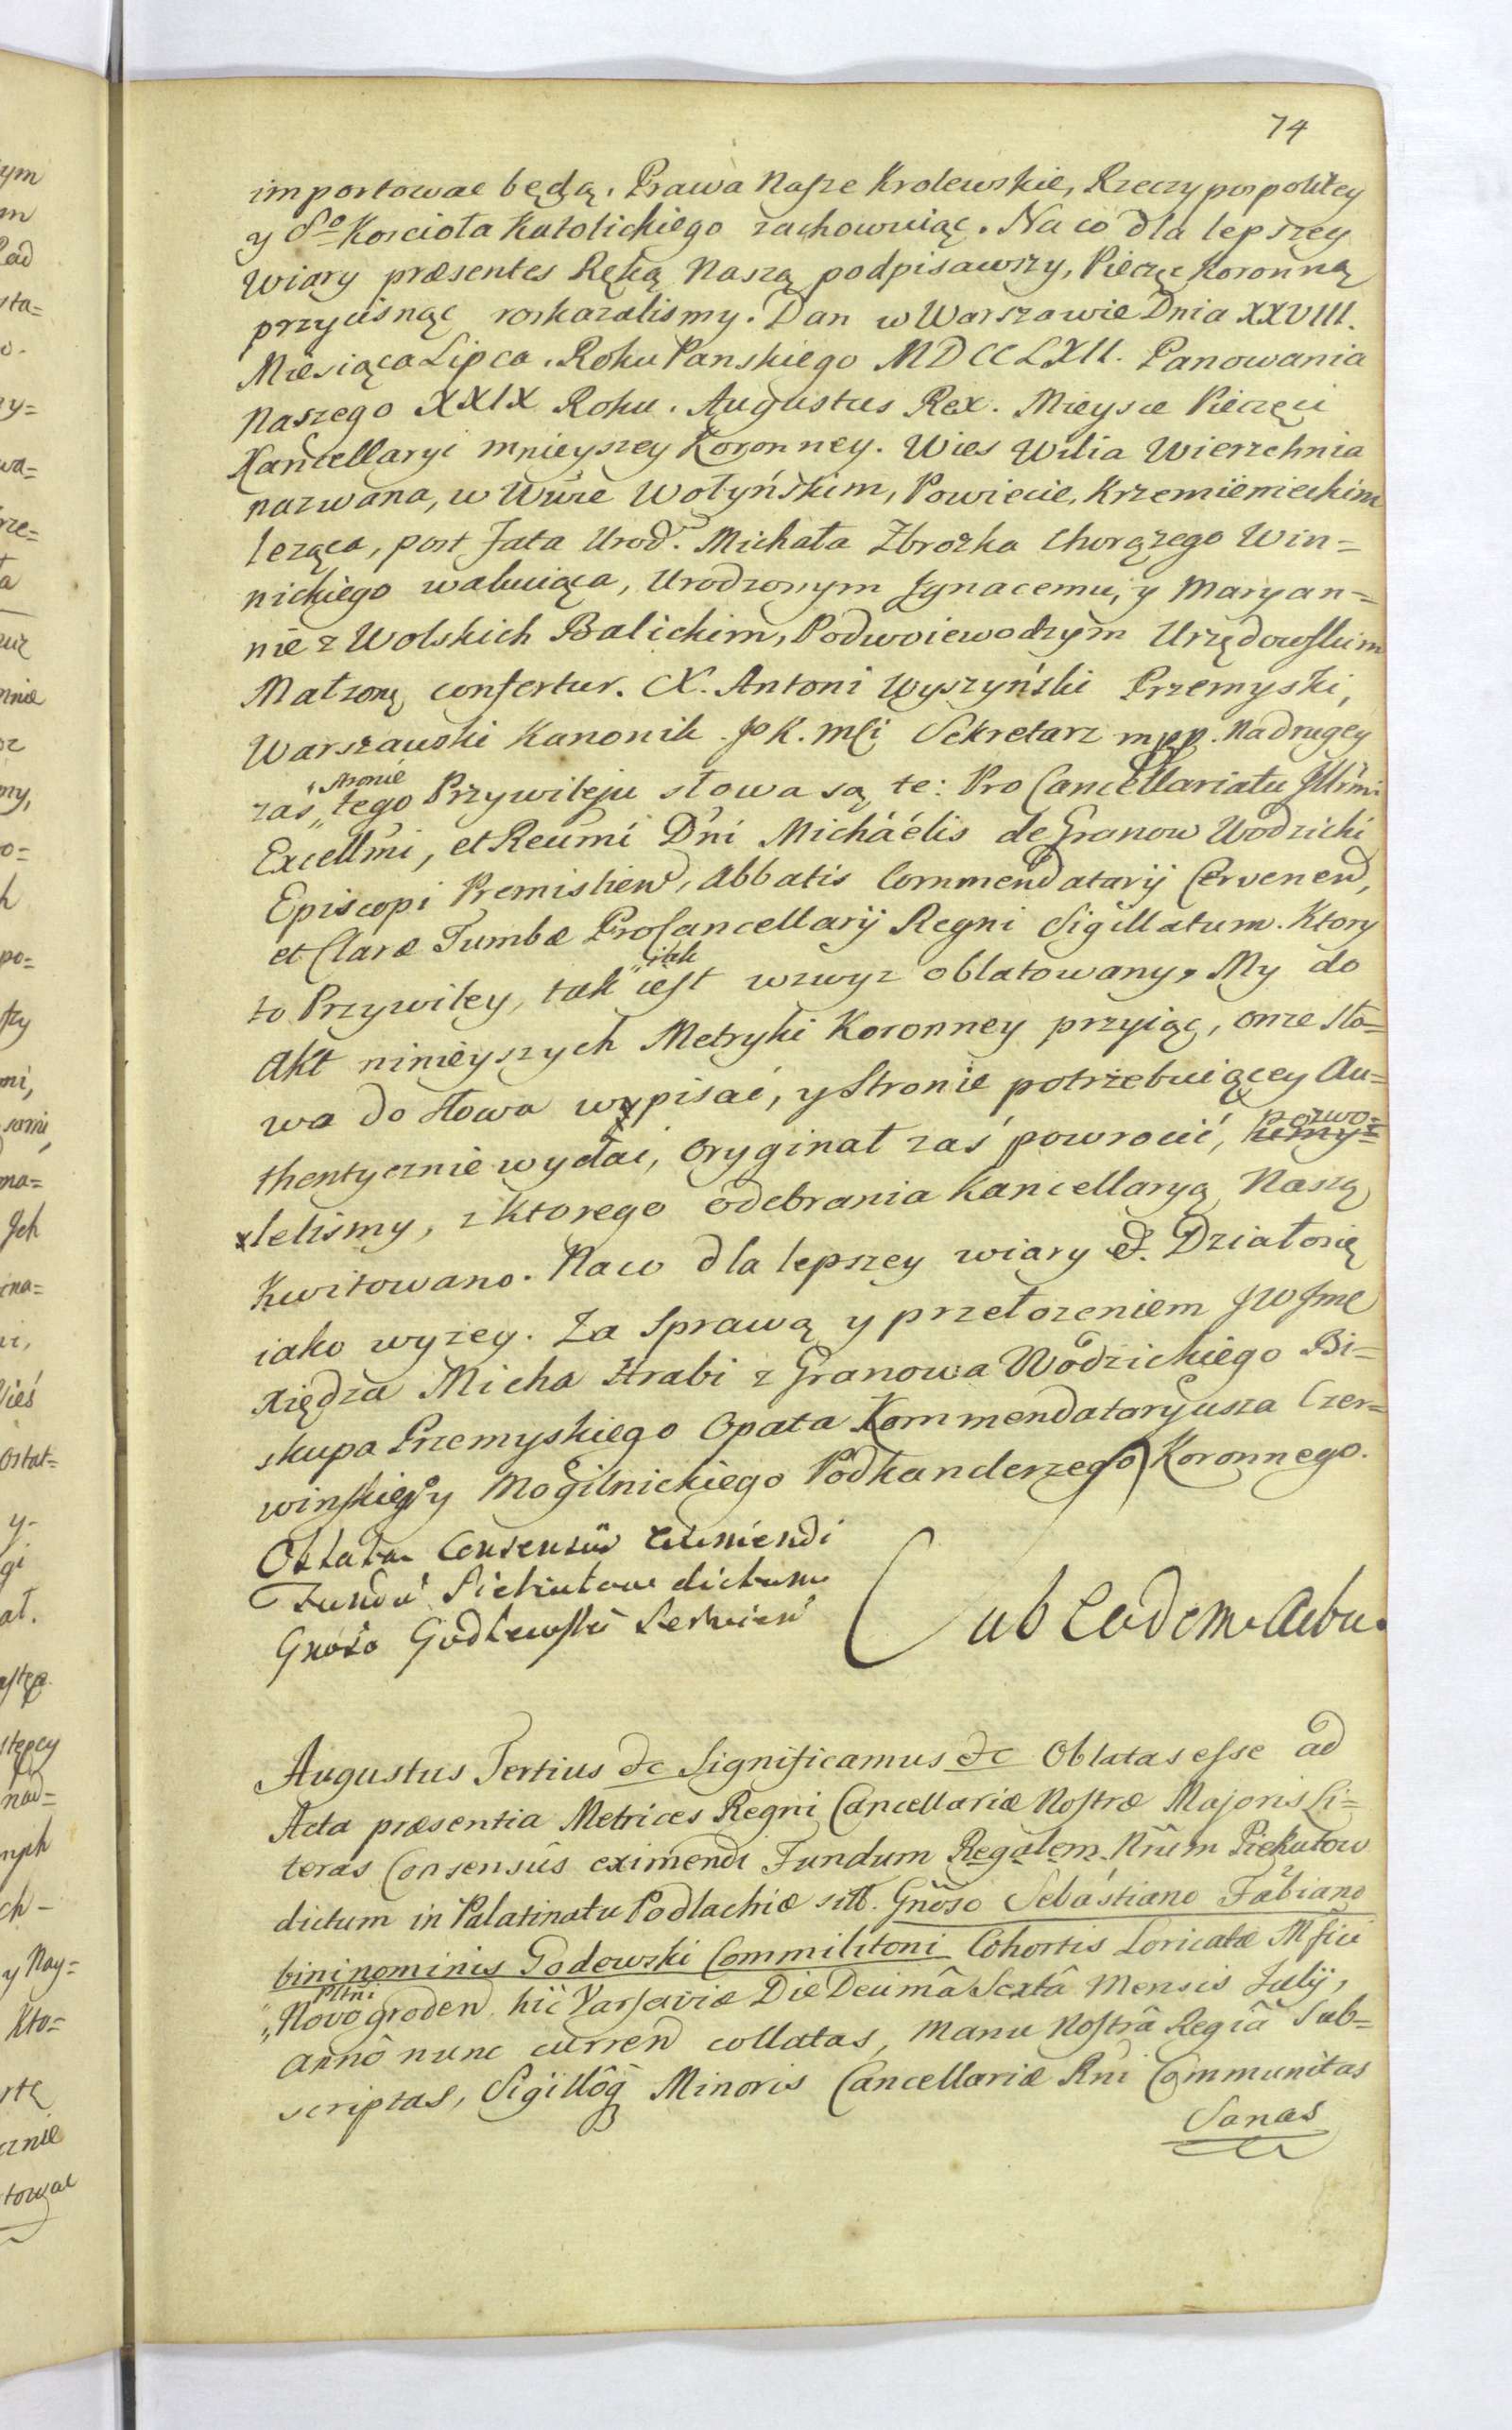 74
importować będą. Prawa Nasze Krolewskie, Rzeczypospolitey
y S<sup>o</sup> Koscioła Katolickiego zachowuiąc. Na co dla lepszey
Wiary præsentes Ręką Naszą podpisawszy, Pieczęć Koronną
przycisnąć roskazalismy. Dan w Warszawie Dnia XXVIII.
Miesiąca Lipca. Roku Panskiego MDCCLXII. Panowania
Naszego XXIX Roku. Augustus Rex. Mieysce Pieczęci
Kancellaryi mnieyszey Koronney. Wies Wilia Wierzchnia
nazwana, w Wwie Wołyńskim, Powiecie, Krzemienieckim
leząca, post Fata Urod. Michała Zbrożka Chorązego Win=
nickiego wakuiąca, Urodzonym Ignacemu, y Maryan=
nie z Wolskich Balickim, Podwoiewodzym Urzędowskim
Małzonę confertur. X. Antoni Wyszyński Przemyski,
Warszawski Kanonik J K. Mci Sekretarz mpp. Na drugey
zaś „stronie tego Przywileju słowa są te: Pro Cancellariatu Illrmi
Excellmi, et Reumi Dni Micháélis de Granow Wodzicki
Episcopi Premislien, Abbatis Commendatarij Cervenen,
et Claræ Tumbæ ProCancellarij Regni Sigillatum. Ktory
to Przywiley, tak „iak iest wzwyz oblatowany, My do
Akt ninieyszych Metryki Koronney przyiąć, onze sło=
wa do słowa wpisać, y Stronie potrzebuiącey Au=
thentycznie wydać, Oryginał zaś powrocić, pozwo=
lelismy, z ktorego odebrania Kancellaryą Naszą
Kwitowano. Naco dla lepszey wiary &. Działosię
iako wyzey. Za Sprawą y przełozeniem JWJmc
Xiędza Micha Hrabi z Granowa Wodzickiego Bi=
skupa Przemyskiego Opata Kommendataryusza Czer=
winskieg y Mogilnickiego Podkanclerzego Koronnego.
Oblata Consensus eximendi
Fundū Piekutow dictum
Gnoso Godlewski Servien
Sub Eadem Actu.
Augustus Tertius &c Significamus &c Oblatas esse ad
Acta præsentia Metrices Regni Cancellariæ Nostræ Majoris Li=
teras Consensûs eximendi Fundum Regalem Nrum Piekutow
dictum in Palatinatu Podlachiæ sitt. Gnoso Sebástiano Fabiano
bini nominis Godewski Commilitoni Cohortis Loricatæ Mfici
„Pltni Novogroden hîc Varsaviæ Die Decimâ Sextâ Mensis Julij,
annô nunc curren collatas, Manu Nostrâ Regiâ Sub=
scriptas, Sigillôq Minoris Cancellariæ Rni Communitas
Sanas